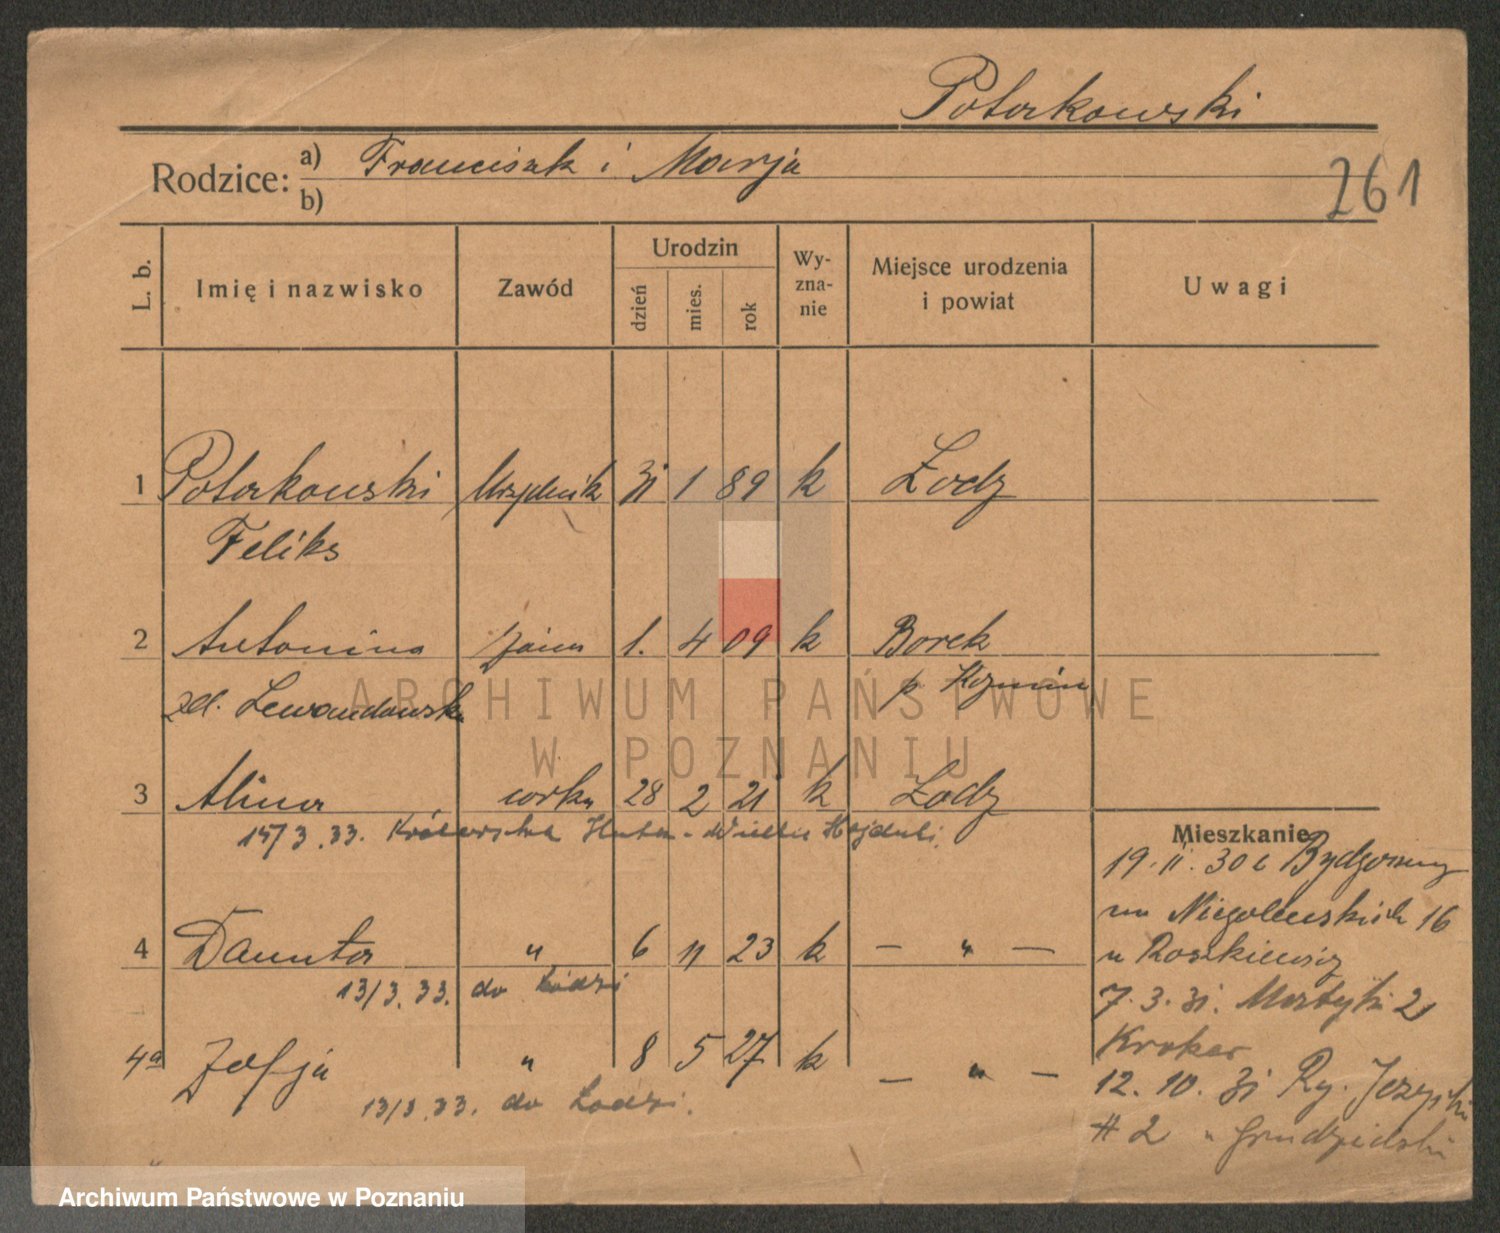 Potorkowski
Rodzice: a) Franciszek i Marja
b)
261
L. b. Imię i nazwisko Zawód Urodzin dzień mies. rok Wy-zna-nie Miejsce urodzenia i powiat Uwagi
1 Potorkowski Urzędnik 31 1 89 k Łodz
Feliks
2 Antonina żona 1. 4 09 k Borek
zd. Lewandowska p. Kozmin
3 Alina córka 28 2 21 k Łodz
15/3.33. Królewska Huta - Wielkie Hajduki
Mieszkanie
19.II.30 z Bydgoszczy
Niegolewskich 16
4 Danuta " 6 11 23 k — " —
u Roszkiewicz
13/3.33. do Łódzi
7.3.31. 21
4a Zofja " 8 5 27 k — " —
12.10.31 Ry. Jeżycki
13/3.33. do Łodzi.
# 2 "
ARCHIWUM PAŃSTWOWE
W POZNANIU
Archiwum Państwowe w Poznaniu